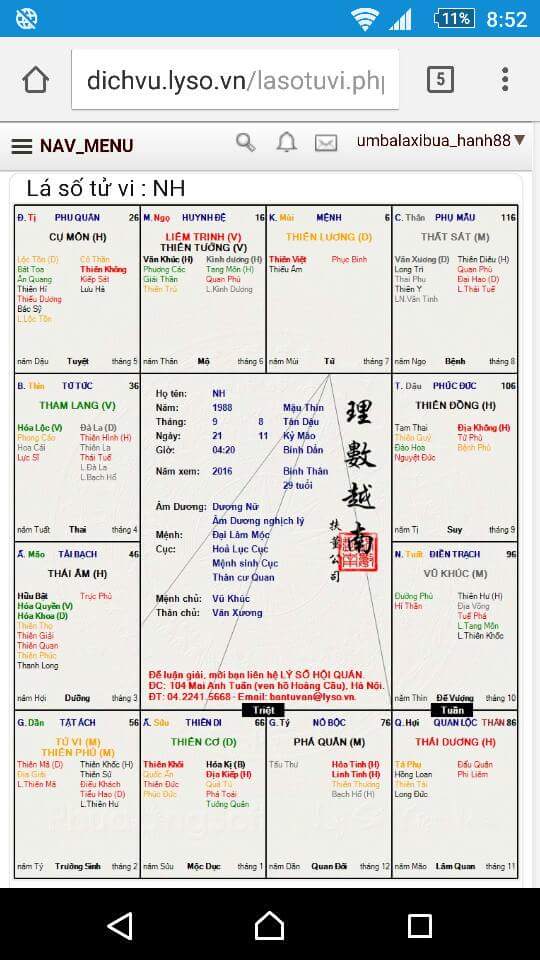 11% 8:52
dichvu.lyso.vn/lasotuvi.php
5
NAV_MENU
umbalaxibua_hanh88
Lá số tử vi : NH
Đ. Tị PHU QUÂN 26
CỰ MÔN (H)
Lộc Tồn (D) Cô Thần
Bát Tọa Thiên Không
Ân Quang Kiếp Sát
Thiên Hỉ Lưu Hà
Thiếu Dương
Bác Sỹ
L.Lộc Tồn
năm Dậu Tuyệt tháng 5
M. Ngọ HUYNH ĐỆ 16
LIÊM TRINH (V)
THIÊN TƯỚNG (V)
Văn Khúc (H) Kình dương (H)
Phượng Các Tang Môn (H)
Giải Thần Quan Phủ
Thiên Trù L.Kình Dương
năm Thân Mộ tháng 6
K. Mùi MỆNH 6
THIÊN LƯƠNG (D)
Thiên Việt Phục Binh
Thiếu Âm
năm Mùi Tử tháng 7
C. Thân PHỤ MẪU 116
THẤT SÁT (M)
Văn Xương (D) Thiên Diêu (H)
Long Trì Quan Phù
Thai Phụ Đại Hao (D)
Thiên Y L.Thái Tuế
LN.Văn Tinh
năm Ngọ Bệnh tháng 8
B. Thìn TỬ TỨC 36
THAM LANG (V)
Hóa Lộc (V) Đà La (D)
Phong Cáo Thiên Hình (H)
Hoa Cái Thiên La
Lực Sĩ Thái Tuế
L.Đà La
L.Bạch Hổ
năm Tuất Thai tháng 4
Họ tên: NH
Năm: 1988 Mậu Thìn
Tháng: 9 8 Tân Dậu
Ngày: 21 11 Kỷ Mão
Giờ: 04:20 Bính Dần
Năm xem: 2016 Bính Thân
29 tuổi
Âm Dương: Dương Nữ
Âm Dương nghịch lý
Mệnh: Đại Lâm Mộc
Cục: Hoả Lục Cục
Mệnh sinh Cục
Thân cư Quan
Mệnh chủ: Vũ Khúc
Thân chủ: Văn Xương
理數越南
Để luận giải, mời bạn liên hệ LÝ SỐ HỘI QUÁN.
ĐC: 104 Mai Anh Tuấn (ven hồ Hoàng Cầu), Hà Nội.
ĐT: 04.2241.5668 - Email: bantuvan@lyso.vn.
T. Dậu PHÚC ĐỨC 106
THIÊN ĐỒNG (H)
Tam Thai Địa Không (H)
Thiên Quý Tử Phù
Đào Hoa Bệnh Phù
Nguyệt Đức
năm Tị Suy tháng 9
Ấ. Mão TÀI BẠCH 46
THÁI ÂM (H)
Hữu Bật Trực Phù
Hóa Quyền (V)
Hóa Khoa (D)
Thiên Thọ
Thiên Giải
Thiên Quan
Thiên Phúc
Thanh Long
năm Hợi Dưỡng tháng 3
N. Tuất ĐIỀN TRẠCH 96
VŨ KHÚC (M)
Đường Phù Thiên Hư (H)
Hỉ Thần Địa Võng
Tuế Phá
L.Tang Môn
L.Thiên Khốc
năm Thìn Đế Vượng tháng 10
Triệt
Tuần
G. Dần TẬT ÁCH 56
TỬ VI (M)
THIÊN PHỦ (M)
Thiên Mã (D) Thiên Khốc (H)
Địa Giải Thiên Sứ
L.Thiên Mã Điếu Khách
Tiểu Hao (D)
L.Thiên Hư
năm Tý Trường Sinh tháng 2
Ấ. Sửu THIÊN DI 66
THIÊN CƠ (D)
Thiên Khôi Hóa Kị (B)
Quốc Ấn Địa Kiếp (H)
Thiên Đức Quả Tú
Phúc Đức Phá Toái
Tướng Quân
năm Sửu Mộc Dục tháng 1
G. Tý NÔ BỘC 76
PHÁ QUÂN (M)
Tấu Thư Hỏa Tinh (H)
Linh Tinh (H)
Thiên Thương
Bạch Hổ (H)
năm Dần Quan Đới tháng 12
Q. Hợi QUAN LỘC THÂN 86
THÁI DƯƠNG (H)
Tả Phụ Đẩu Quân
Hồng Loan Phi Liêm
Thiên Tài
Long Đức
năm Mão Lâm Quan tháng 11